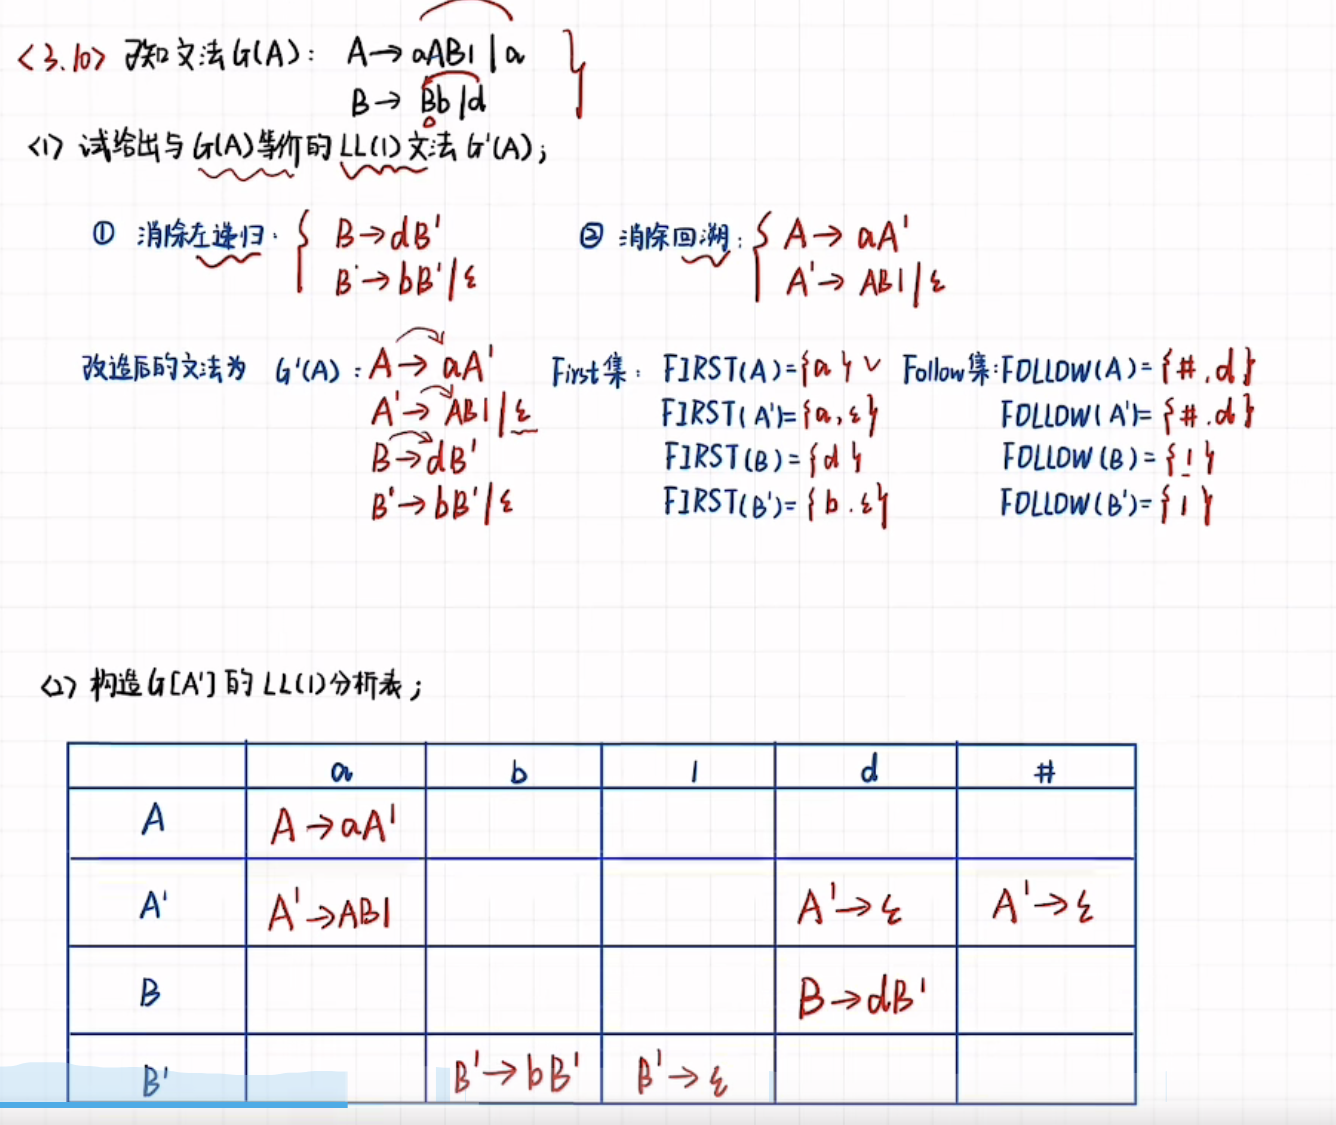 <3.10> 已知文法G(A): A→aABl|a
B→Bb|d
<1> 试给出与G(A)等价的LL(1)文法G'(A);
① 消除左递归: B→dB' ② 消除回溯: A→aA'
B'→bB'|ε A'→ABl|ε
改造后的文法为 G'(A): A→aA' First集: FIRST(A)={a} ∨ Follow集: FOLLOW(A)={#.d}
A'→ABl|ε FIRST(A')={a,ε} FOLLOW(A')={#.d}
B→dB' FIRST(B)={d} FOLLOW(B)={l}
B'→bB'|ε FIRST(B')={b.ε} FOLLOW(B')={l}
<2> 构造G[A']的LL(1)分析表;
a b l d #
A A→aA'
A' A'→ABl A'→ε A'→ε
B B→dB'
B' B'→bB' B'→ε